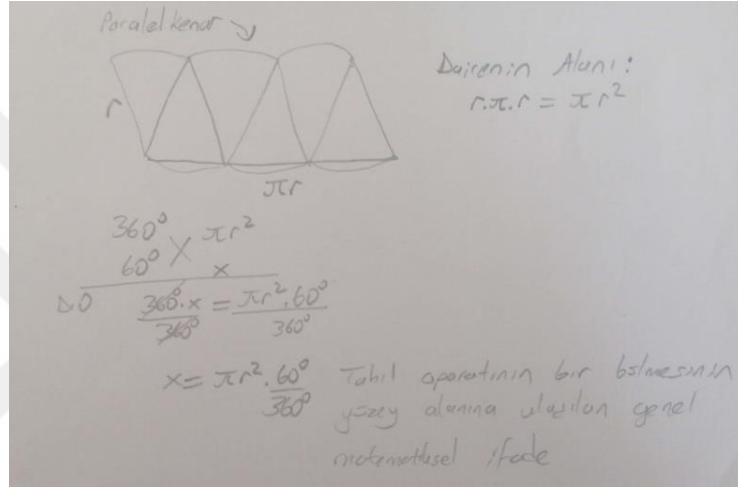 Paralel kenar
r
πr
Dairenin Alanı:
r.π.r = πr²
360° πr²
60° x
DO 360°.x = πr².60°
360° 360°
x = πr².60° Tahıl aparatının bir bölmesinin
360° yüzey alanına ulaşılan genel
matematiksel ifade